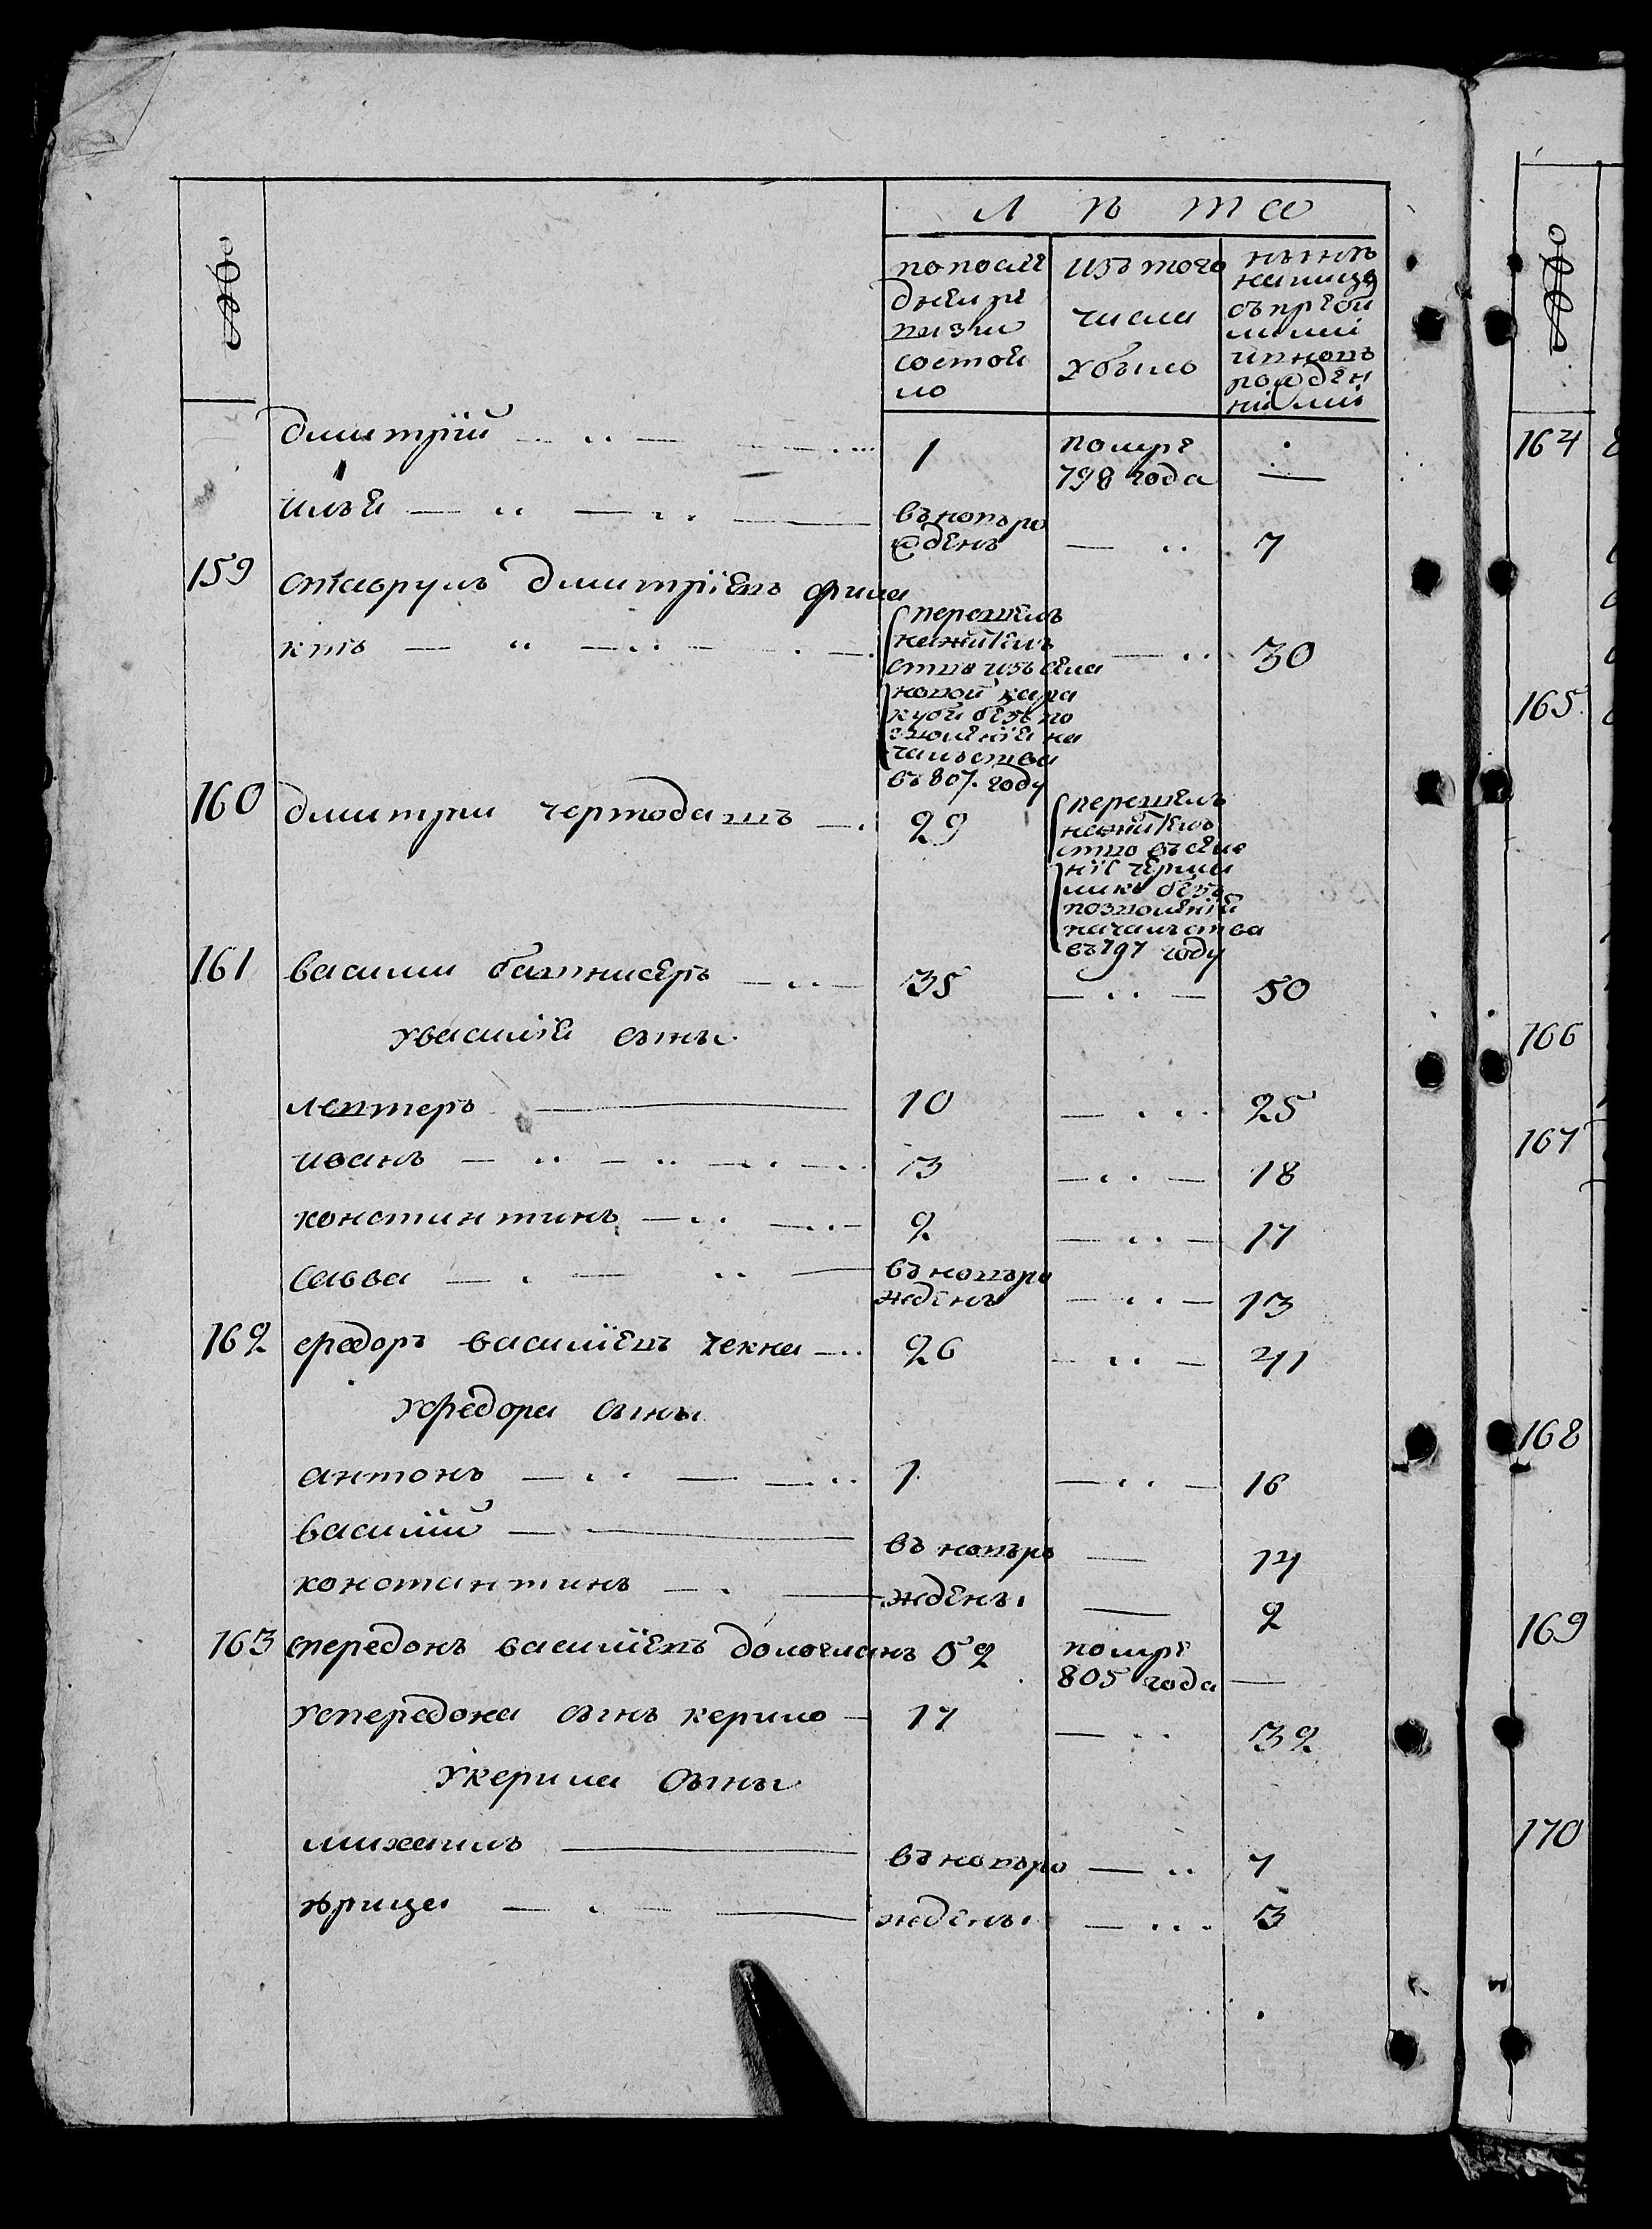 Лѣта
попосле
дней ре
визии
состоя
ло
изъ того
числа
убыло
нынѣ
налицо
съ прибы
лыми
и вновь
рожден
ными
дмитрій 1 помре
798 года
илья вновь ро
жденъ 7
159 ставрулъ дмитріевъ
30
перешелъ
на житель
ство изъ села
новой кара
кубы безъ по
зволенія на
чальства
въ 807. году
160 дмитрии чертодашъ 29
перешелъ
на житель
ство въ селе
ніе
безъ
позволеній
началства
въ 797 году
161 василии 35 50
у василія сыны
лефтеръ 10 25
иванъ 3 18
константинъ 2 17
савва вновь ро
жденъ 13
162 федоръ василіевъ чекна 26 41
у федора сыны
антонъ 1 16
василій вновь ро 14
константинъ ждены 2
163 спередонъ василіевъ дологлианъ 52 помре
805 года
у спередона сынъ керило 17 32
у керила сыны
михаилъ вновь ро 7
ждены 3
164
165
166
167
168
169
170